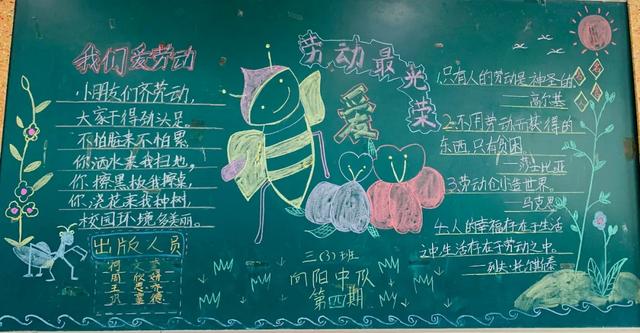 我们爱劳动
小朋友们齐劳动,
大家干得劲头足
不怕脏来不怕累
你洒水来我扫地,
你擦黑板我擦桌,
你浇花来我种树,
校园环境多美丽。
出版人员
劳动最光荣
爱
三(3)班
向阳中队
第四期
1.只有人的劳动是神圣的
——高尔基
2.不用劳动而获得的
东西,只有贫困
——莎士比亚
3.劳动创造世界。
——马克思
4.人的幸福存在于生活
之中,生活存在于劳动之中。
——列夫·托尔斯泰